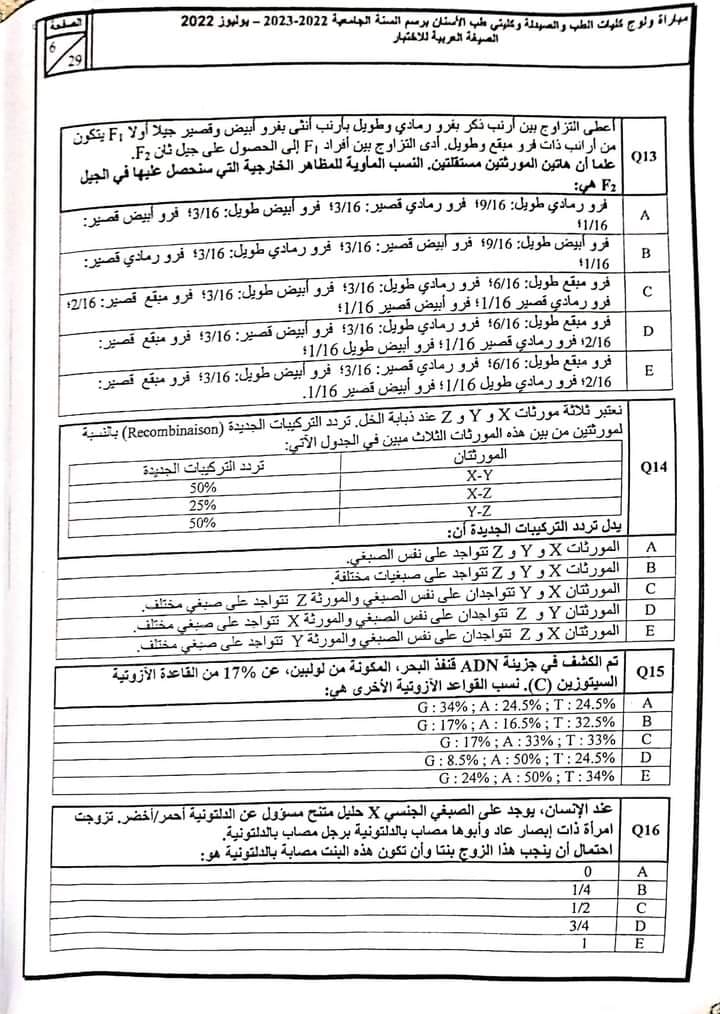 مباراة ولوج كليات الطب والصيدلة وكليتي طب الأسنان برسم السنة الجامعية 2022-2023 – يوليوز 2022
الصيغة العربية للاختبار
الصفحة
6
29
Q13
أعطى التزاوج بين أرنب ذكر بفرو رمادي وطويل بأرنب أنثى بفرو أبيض وقصير جيلا أولا F1 يتكون
من أرانب ذات فرو مبقع وطويل. أدى التزاوج بين أفراد F1 إلى الحصول على جيل ثان F2.
علما أن هاتين المورثتين مستقلتين. النسب المئوية للمظاهر الخارجية التي سنحصل عليها في الجيل
F2 هي:
A
فرو رمادي طويل: 9/16؛ فرو رمادي قصير: 3/16؛ فرو أبيض طويل: 3/16؛ فرو أبيض قصير:
1/16؛
B
فرو أبيض طويل: 9/16؛ فرو أبيض قصير: 3/16؛ فرو رمادي طويل: 3/16؛ فرو رمادي قصير:
1/16؛
C
فرو مبقع طويل: 6/16؛ فرو رمادي طويل: 3/16؛ فرو أبيض طويل: 3/16؛ فرو مبقع قصير: 2/16؛
فرو رمادي قصير 1/16؛ فرو أبيض قصير 1/16؛
D
فرو مبقع طويل: 6/16؛ فرو رمادي طويل: 3/16؛ فرو أبيض قصير: 3/16؛ فرو مبقع قصير:
2/16؛ فرو رمادي قصير 1/16؛ فرو أبيض طويل 1/16؛
E
فرو مبقع طويل: 6/16؛ فرو رمادي قصير: 3/16؛ فرو أبيض طويل: 3/16؛ فرو مبقع قصير:
2/16؛ فرو رمادي طويل 1/16؛ فرو أبيض قصير 1/16.
Q14
نعتبر ثلاثة مورثات X و Y و Z عند ذبابة الخل. تردد التركيبات الجديدة (Recombinaison) بالنسبة
لمورثتين من بين هذه المورثات الثلاث مبين في الجدول الآتي:
المورثتان تردد التركيبات الجديدة
X-Y 50%
X-Z 25%
Y-Z 50%
يدل تردد التركيبات الجديدة أن:
A المورثات X و Y و Z تتواجد على نفس الصبغي.
B المورثات X و Y و Z تتواجد على صبغيات مختلفة.
C المورثتان X و Y تتواجدان على نفس الصبغي والمورثة Z تتواجد على صبغي مختلف.
D المورثتان Y و Z تتواجدان على نفس الصبغي والمورثة X تتواجد على صبغي مختلف.
E المورثتان X و Z تتواجدان على نفس الصبغي والمورثة Y تتواجد على صبغي مختلف.
Q15
تم الكشف في جزيئة ADN قنفذ البحر، المكونة من لولبين، عن 17% من القاعدة الأزوتية
السيتوزين (C). نسب القواعد الأزوتية الأخرى هي:
A G : 34% ; A : 24.5% ; T : 24.5%
B G : 17% ; A : 16.5% ; T : 32.5%
C G : 17% ; A : 33% ; T : 33%
D G : 8.5% ; A : 50% ; T : 24.5%
E G : 24% ; A : 50% ; T : 34%
Q16
عند الإنسان، يوجد على الصبغي الجنسي X حليل متنح مسؤول عن الدلتونية أحمر/أخضر. تزوجت
امرأة ذات إبصار عاد وأبوها مصاب بالدلتونية برجل مصاب بالدلتونية.
احتمال أن ينجب هذا الزوج بنتا وأن تكون هذه البنت مصابة بالدلتونية هو:
A 0
B 1/4
C 1/2
D 3/4
E 1